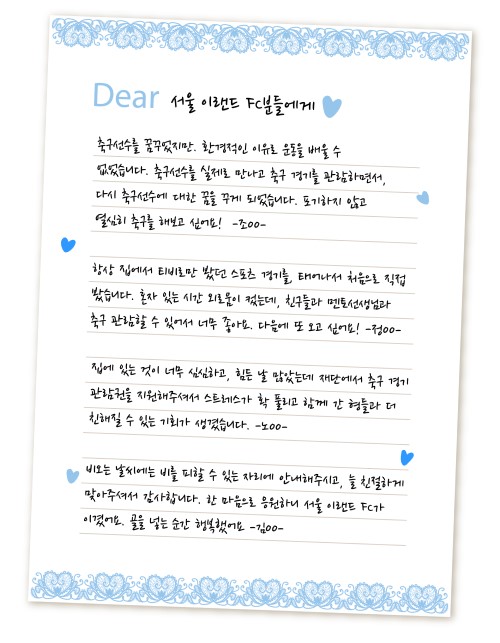 Dear 서울 이랜드 FC분들에게
축구선수를 꿈꾸었지만, 환경적인 이유로 운동을 배울 수
없었습니다. 축구선수를 실제로 만나고 축구 경기를 관람하면서,
다시 축구선수에 대한 꿈을 꾸게 되었습니다. 포기하지 않고
열심히 축구를 해보고 싶어요! -조oo-
항상 집에서 티비로만 봤던 스포츠 경기를, 태어나서 처음으로 직접
봤습니다. 혼자 있는 시간 외로움이 컸는데, 친구들과 멘토선생님과
축구 관람할 수 있어서 너무 좋아요. 다음에 또 오고 싶어요! -정oo-
집에 있는 것이 너무 심심하고, 힘든 날 많았는데 재단에서 축구 경기
관람권을 지원해주셔서 스트레스가 확 풀리고 함께 간 형들과 더
친해질 수 있는 기회가 생겼습니다. -노oo-
비오는 날씨에는 비를 피할 수 있는 자리에 안내해주시고, 늘 친절하게
맞아주셔서 감사합니다. 한 마음으로 응원하니 서울 이랜드 FC가
이겼어요. 골을 넣는 순간 행복했어요 -김oo-